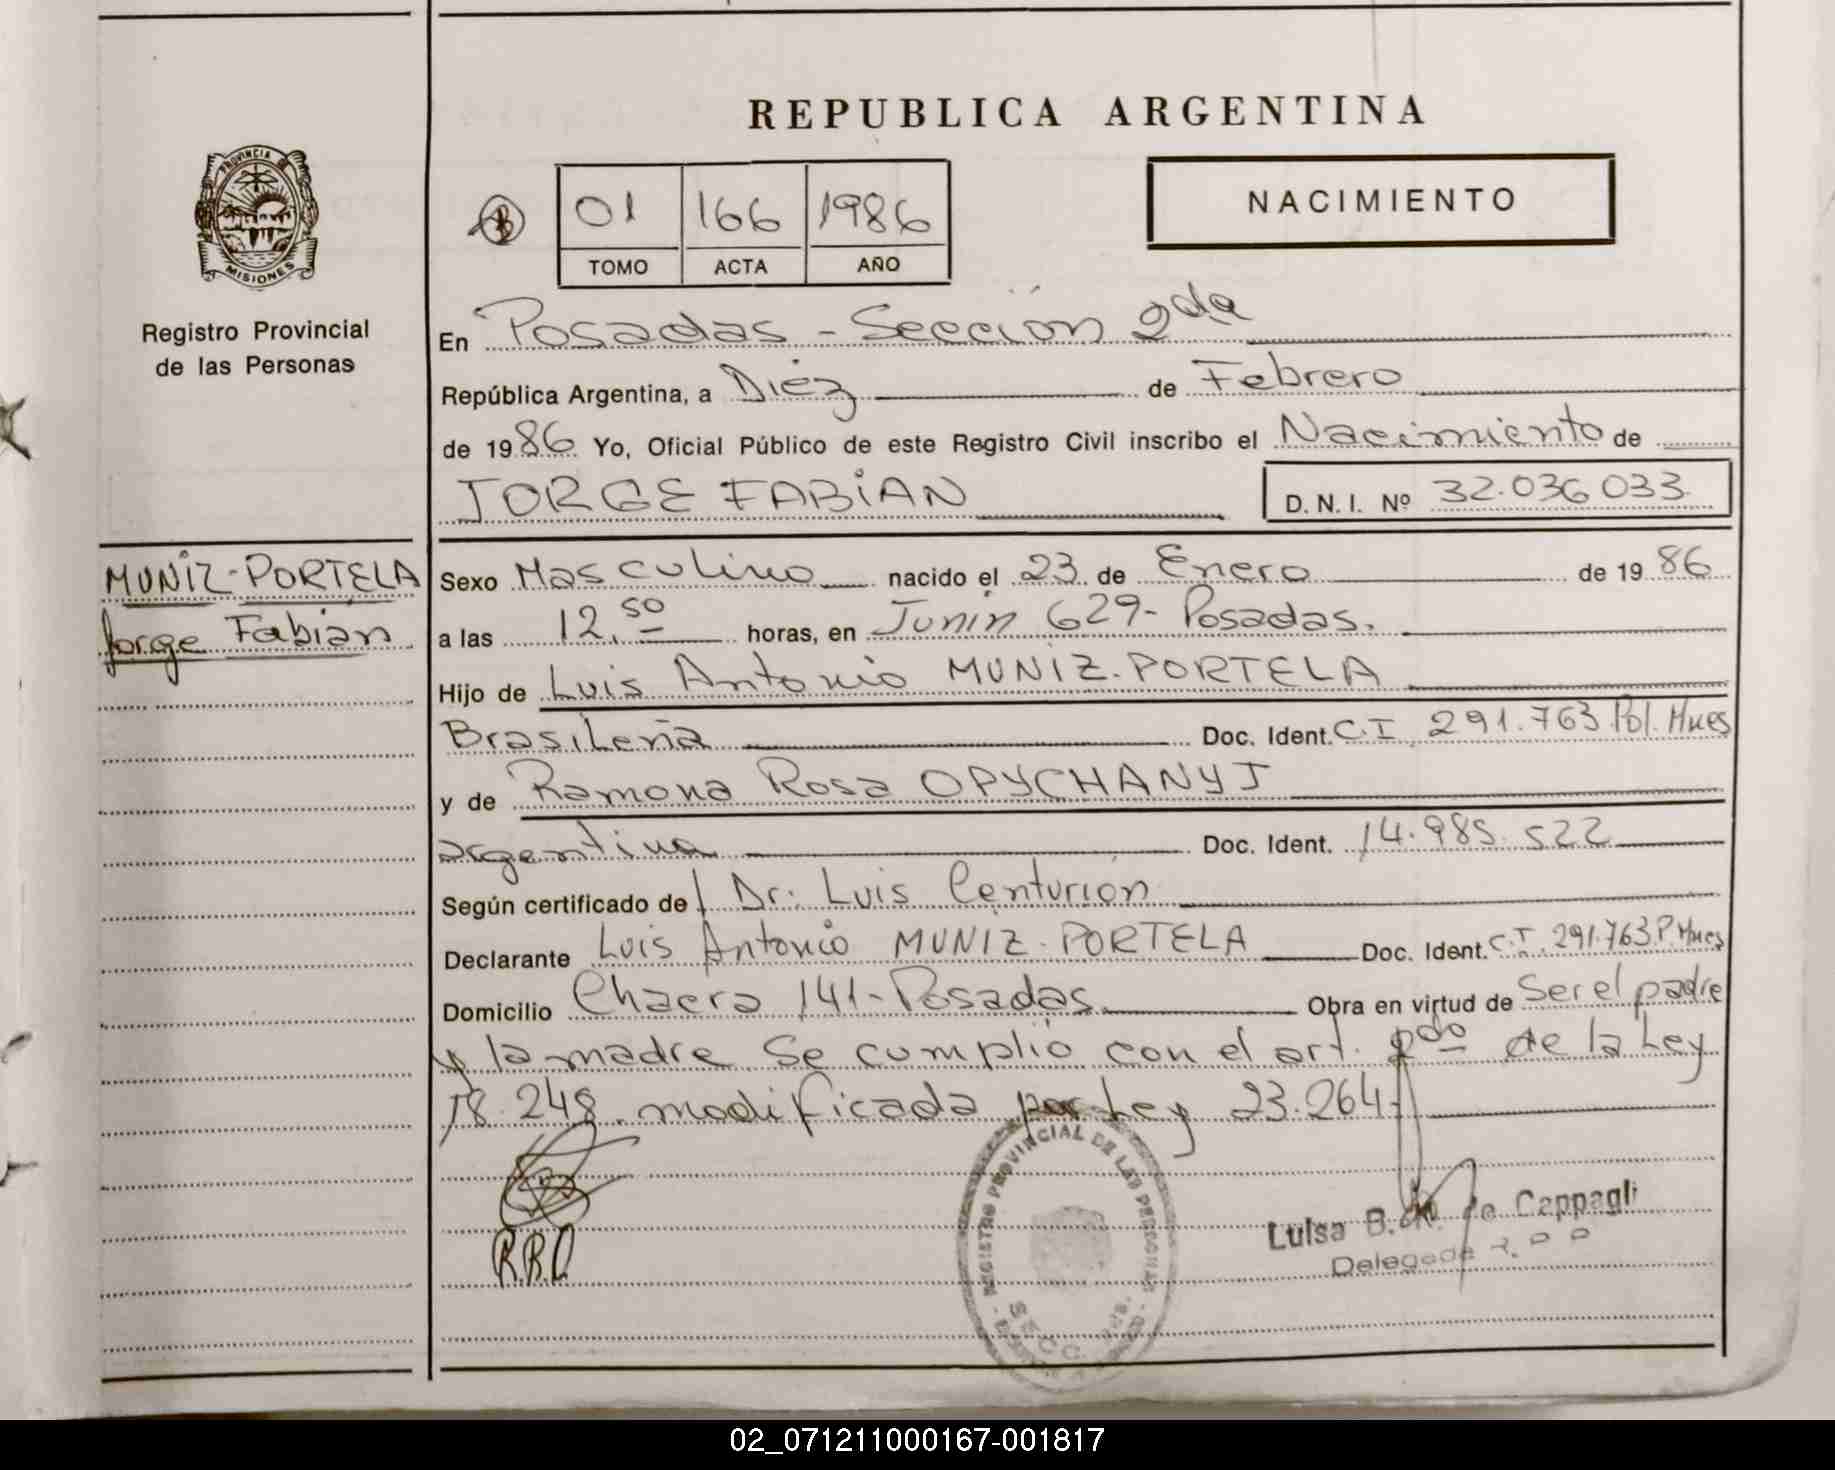 REPUBLICA ARGENTINA
PROVINCIA DE
MISIONES
Registro Provincial
de las Personas
01 166 1986
TOMO ACTA AÑO
NACIMIENTO
En Posadas - Sección 2da
República Argentina, a Diéz de Febrero
de 1986 Yo, Oficial Público de este Registro Civil inscribo el Nacimiento de
JORGE FABIAN
D. N. I. Nº 32.036.033
MUNIZ-PORTELA
Jorge Fabián
Sexo Masculino nacido el 23 de Enero de 1986
a las 12,50 horas, en Junín 629- Posadas.
Hijo de Luis Antonio MUNIZ-PORTELA
Brasileña Doc. Ident. C.I. 291.763 Pol. Mnes
y de Ramona Rosa OPYCHANYJ
argentina Doc. Ident. 14.985.522
Según certificado de Dr. Luis Centurión
Declarante Luis Antonio MUNIZ-PORTELA Doc. Ident. C.I. 291.763 P. Mnes
Domicilio Chacra 141- Posadas Obra en virtud de Ser el padre
y la madre Se cumplió con el art. 2do de la Ley
18.248. modificada por Ley 23.264.
R.B.C
REGISTRO PROVINCIAL DE LAS PERSONAS
SECC.
Luisa B. de Cappagli
Delegada R. P. P.
02_071211000167-001817